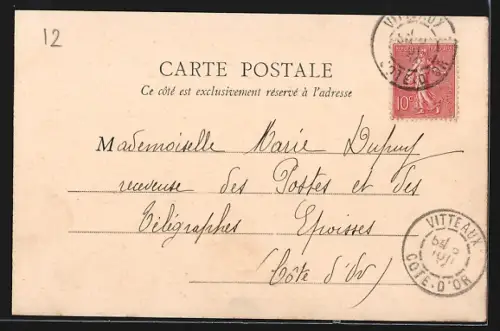 12
VITTEAUX
COTE-D'OR
10c
CARTE POSTALE
Ce côté est exclusivement réservé à l'adresse
Mademoiselle Marie Dupuy
receveuse des Postes et des
Télégraphes Epoisses
(Côte d'Or)
VITTEAUX
COTE-D'OR